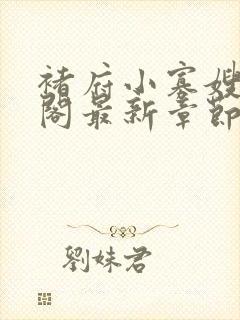 褚府小寡嫂
阁最新章節
劉妹君